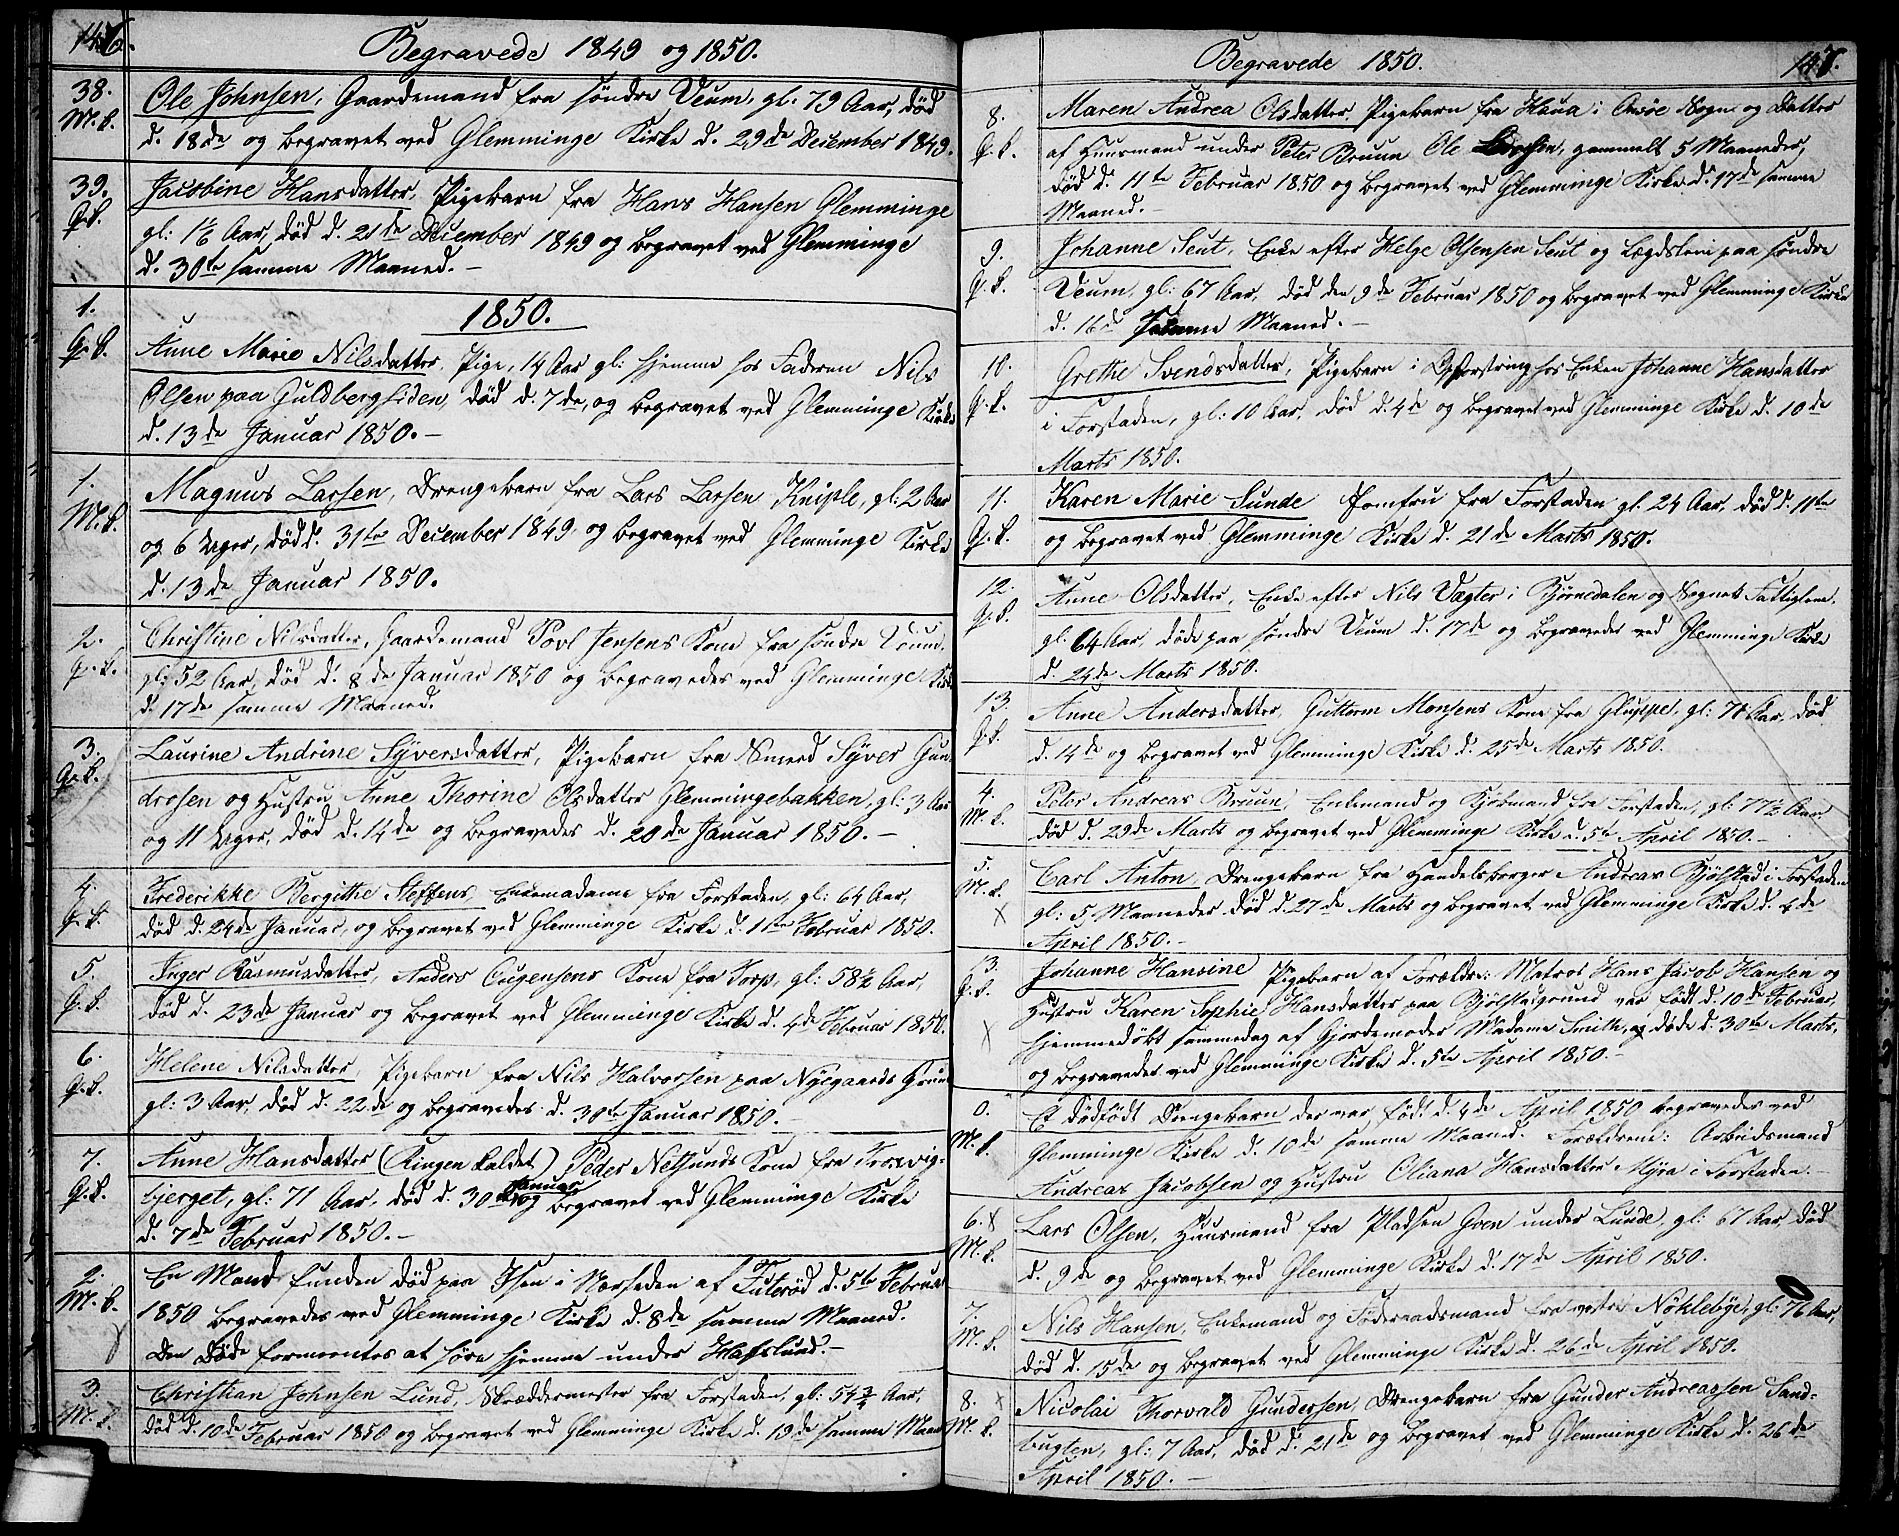 146.
Begravede 1849 og 1850.
38.
M. k.
Ole Johnsen, Gaardemand fra søndre Veum, gl: 79 Aar, død
d. 18de og begravet ved Glemminge Kirke d. 29de December 1849.
39.
Q. k.
Jacobine Hansdatter, Pigebarn fra Hans Hansen Glemminge
gl: 1 1/6 Aar, død d. 21de December 1849 og begravet ved Glemminge
d. 30te samme Maaned. –
1850.
1.
Q. k.
Anne Marie Nilsdatter, Pige, 14 Aar gl: hjemme hos Faderen Nils
Olsen paa Guldbergsiden, død d. 7de, og begravet ved Glemminge Kirke
d. 13de Januar 1850. –
1.
M. k.
Magnus Larsen, Drengebarn fra Lars Larsen Kniple, gl: 2 Aar
og 6 Uger, død d. 31te December 1849, og begravet ved Glemminge Kirke
d. 13de Januar 1850.
2.
Q. k.
Christine Nilsdatter, Gaardemand Povl Jensens Kone fra søndre Veum,
gl: 52 Aar, død d. 8de Januar 1850 og begravedes ved Glemminge Kirke
d. 17de samme Maaned.
3.
Q. k.
Laurine Andrine Syversdatter, Pigebarn fra Smed Syver Gun-
drosen og Hustru Anne Thorine Olsdatter Glemmingebakken, gl: 3 Aar
og 11 Uger, død d. 14de og begravedes d. 20de Januar 1850. –
4.
Q. k.
Frederikke Bergithe Steffens, Enkemadame fra Forstaden, gl: 64 Aar,
død d. 24de Januar, og begravet ved Glemminge Kirke d. 1ste Februar 1850.
5.
Q. k.
Inger Rasmusdatter, Anders Eugensens Kone fra Torp, gl: 58 1/2 Aar,
død d. 23de Januar og begravet ved Glemminge Kirke d. 4de Februar 1850.
6.
Q. k.
Helene Nilsdatter, Pigebarn fra Nils Halvorsen paa Nygaards Grund
gl: 3 Aar, død d. 22de og begravedes d. 30te Januar 1850. –
7.
Q. k.
Anne Hansdatter (Ringen kaldet) Peder Nelsunds Kone fra Trosvig-
bjerget, gl: 71 Aar, død d. 30te Januar og begravet ved Glemminge Kirke
d. 7de Februar 1850. –
2.
M. k.
En Mand funden død paa Isen i Nærheden af Tuterød d. 5te Februar
1850 begravedes ved Glemminge Kirke d. 8de samme Maaned.
Den Døde formeentes at høre hjemme under Hafslund. –
3.
M. k.
Christian Johnsen Lund, Skreddermester fra Forstaden, gl: 54 3/4 Aar,
død d. 10de Februar 1850 og begravet ved Glemminge Kirke d. 19de samme Maan
147.
Begravede 1850.
8.
Q. k.
Maren Andrea Olsdatter, Pigebarn fra Haua i Onsøe Sogn og Datter
af Huusmand under Peter Bruun Ole Larsen, gammelt 5 Maaneder,
død d. 11te Februar 1850 og begravet ved Glemminge Kirke d. 17de samme
Maaned. –
9.
Q. k.
Johanne Seut, Enke efter Helge Olsensen Seut og Lægdslem paa søndre
Veum, gl: 67 Aar, død den 9de Februar 1850 og begravet ved Glemminge Kirke
d. 16de samme Maaned. –
10.
Q. k.
Grethe Svendsdatter, Pigebarn i Opfostring hos Enken Johanne Hansdatter
i Forstaden, gl: 10 Aar, død d. 4de og begravet ved Glemminge Kirke d. 10de
Marts 1850.
11.
Q. k.
Karen Marie Lunde Jomfru fra Forstaden gl. 24 Aar, død d. 11te
og begravet ved Glemminge Kirke d. 21de Marts 1850.
12.
Q. k.
Anne Olsdatter, Enke efter Nils Vægter i Bjørnedalen og Sognets Fattiglem.
gl: 64 Aar, døde paa søndre Veum d. 17de og begravedes ved Glemminge Kirke
d. 24de Marts 1850.
13.
Q. k.
Anne Andersdatter, Guttorm Monsens Kone fra Gluppe, gl: 78 Aar, død
d. 14de og begravet ved Glemminge Kirke d. 25de Marts 1850.
4.
M. k.
Peter Andreas Bruun, Enkemand og Kjøbmand fra Forstaden, gl: 77 1/2 Aar
død d. 29de Marts og begravet ved Glemminge Kirke d. 5te April 1850. –
5.
M. k.
X
Carl Anton, Drengebarn fra Handelsborger Andreas Bjølstad i Forstaden
gl: 5 Maaneder død d. 27de Marts og begravet ved Glemminge Kirke d. 4de
April 1850. –
13.
Q. k.
X
Johanne Hansine Pigebarn af Forældre: Matros Hans Jacob Hansen og
Hustru Karen Sophie Hansdatter paa Bjølstadgrund var født d. 10de Februar,
hjemmedøbt sammedag af Gjordemoder Madame Smith, og døde d. 30te Marts,
og begravedes ved Glemminge Kirke d. 5te April 1850. –
0.
M. k.
Et dødfødt Drengebarn der var født d. 4de April 1850 begravedes ved
Glemminge Kirke d. 10de samme Maaned. Forældrene: Arbeidsmand
Andreas Jacobsen og Hustru Oliana Hansdatter Myra i Forstaden. –
6. X
M. k.
Lars Olsen, Huusmand fra Pladsen Goen under Lunde, gl: 67 Aar død
d. 9de og begravet ved Glemminge Kirke d. 17de April 1850.
7.
M. k.
Nils Hansen, Enkemand og Føderaadsmand fra vestre Nøklebye, gl: 76 Aar,
død d. 15de og begravet ved Glemminge Kirke d. 26de April 1850.
8. X
M. k.
Nicolai Thorvald Gundersen, Drengebarn fra Gunder Andreassen Sand-
bugten, gl: 7 Aar, død d. 21de og begravet ved Glemminge Kirke d. 26de
April 1850. –